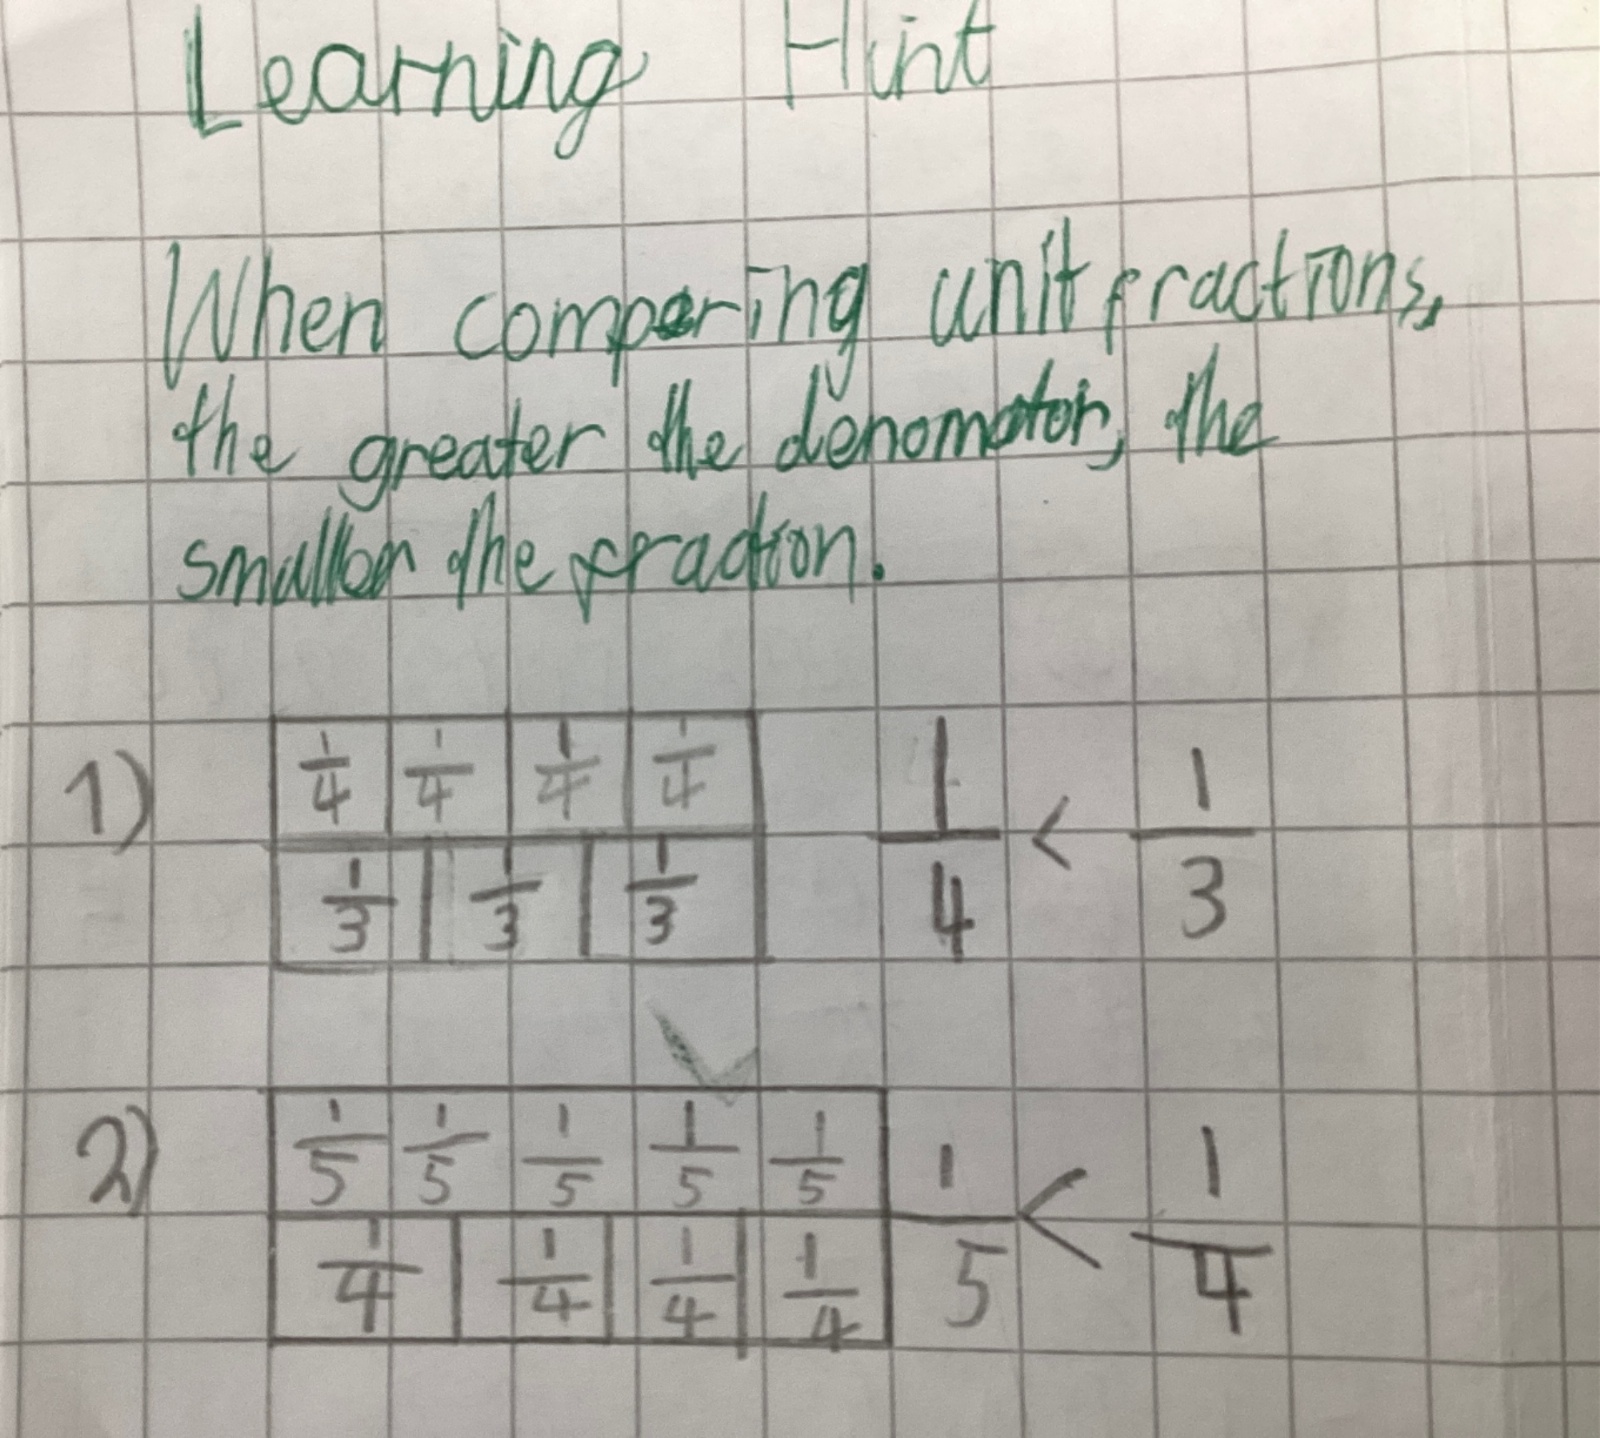 Learning Hint
When comparing unit fractions,
the greater the denomator, the
smaller the fraction.
1) 1/4 1/4 1/4 1/4
1/3 1/3 1/3
1/4 < 1/3
2) 1/5 1/5 1/5 1/5 1/5
1/4 1/4 1/4 1/4
1/5 < 1/4